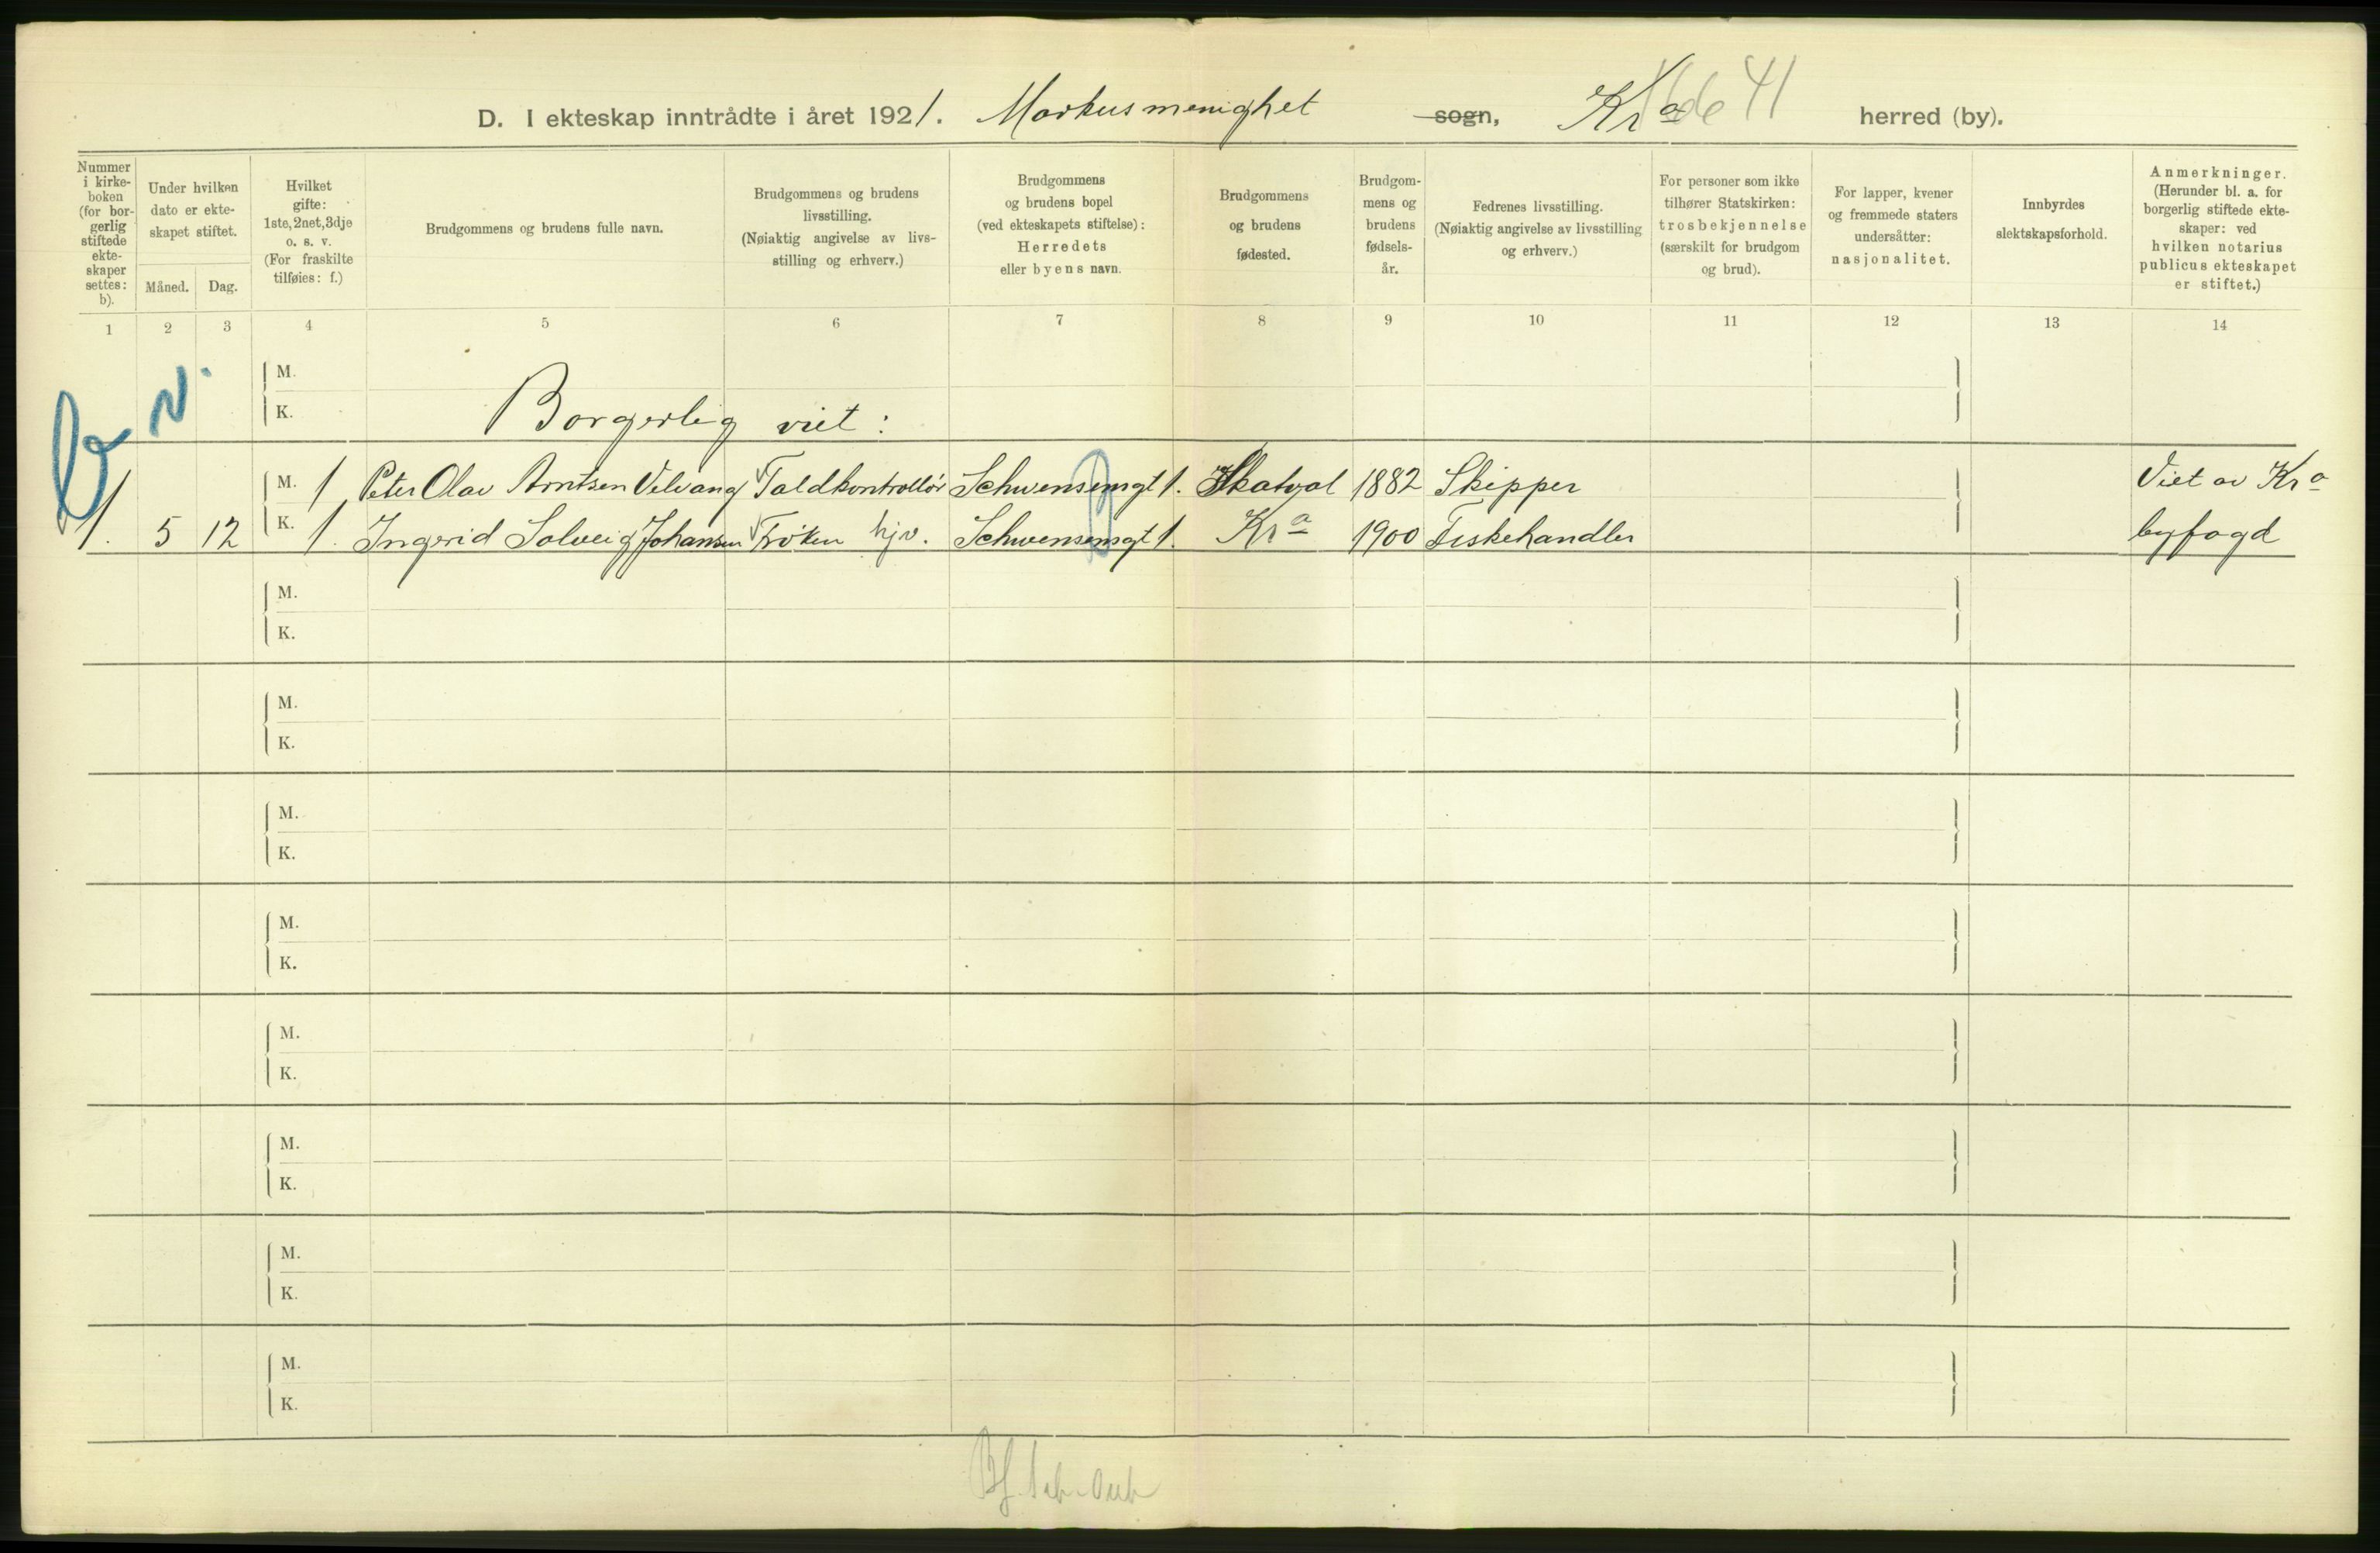 D. I ekteskap inntrådte i året 1921. Markus menighet sogn, Kra 41 herred (by).
Nummer i kirke-boken (for bor-gerlig stiftede ekte-skaper settes: b).
Under hvilken dato er ekte-skapet stiftet.
Måned. Dag.
Hvilket gifte: 1ste, 2net, 3dje o. s. v. (For fraskilte tilføies: f.)
Brudgommens og brudens fulle navn.
Brudgommens og brudens livsstilling. (Nøiaktig angivelse av livs-stilling og erhverv.)
Brudgommens og brudens bopel (ved ekteskapets stiftelse): Herredets eller byens navn.
Brudgommens og brudens fødested.
Brudgom-mens og brudens fødsels-år.
Fedrenes livsstilling. (Nøiaktig angivelse av livsstilling og erhverv.)
For personer som ikke tilhører Statskirken: trosbekjennelse (særskilt for brudgom og brud).
For lapper, kvener og fremmede staters undersåtter: nasjonalitet.
Innbyrdes slektskapsforhold.
Anmerkninger. (Herunder bl. a. for borgerlig stiftede ekte-skaper: ved hvilken notarius publicus ekteskapet er stiftet.)
1 2 3 4 5 6 7 8 9 10 11 12 13 14
b. v.
M.
K. Borgerlig viet:
M. 1 Peter Olav Arntsen Velvang Toldkontrollör Schwensensgt 1. Skatval 1882 Skipper Viet av Kra
1. 5 12 K. 1. Ingerid Solveig Johansen Fröken hjv. Schwensensgt 1. Kra 1900 Fiskehandler byfogd
M.
K.
M.
K.
M.
K.
M.
K.
M.
K.
M.
K.
M.
K.
M.
K.